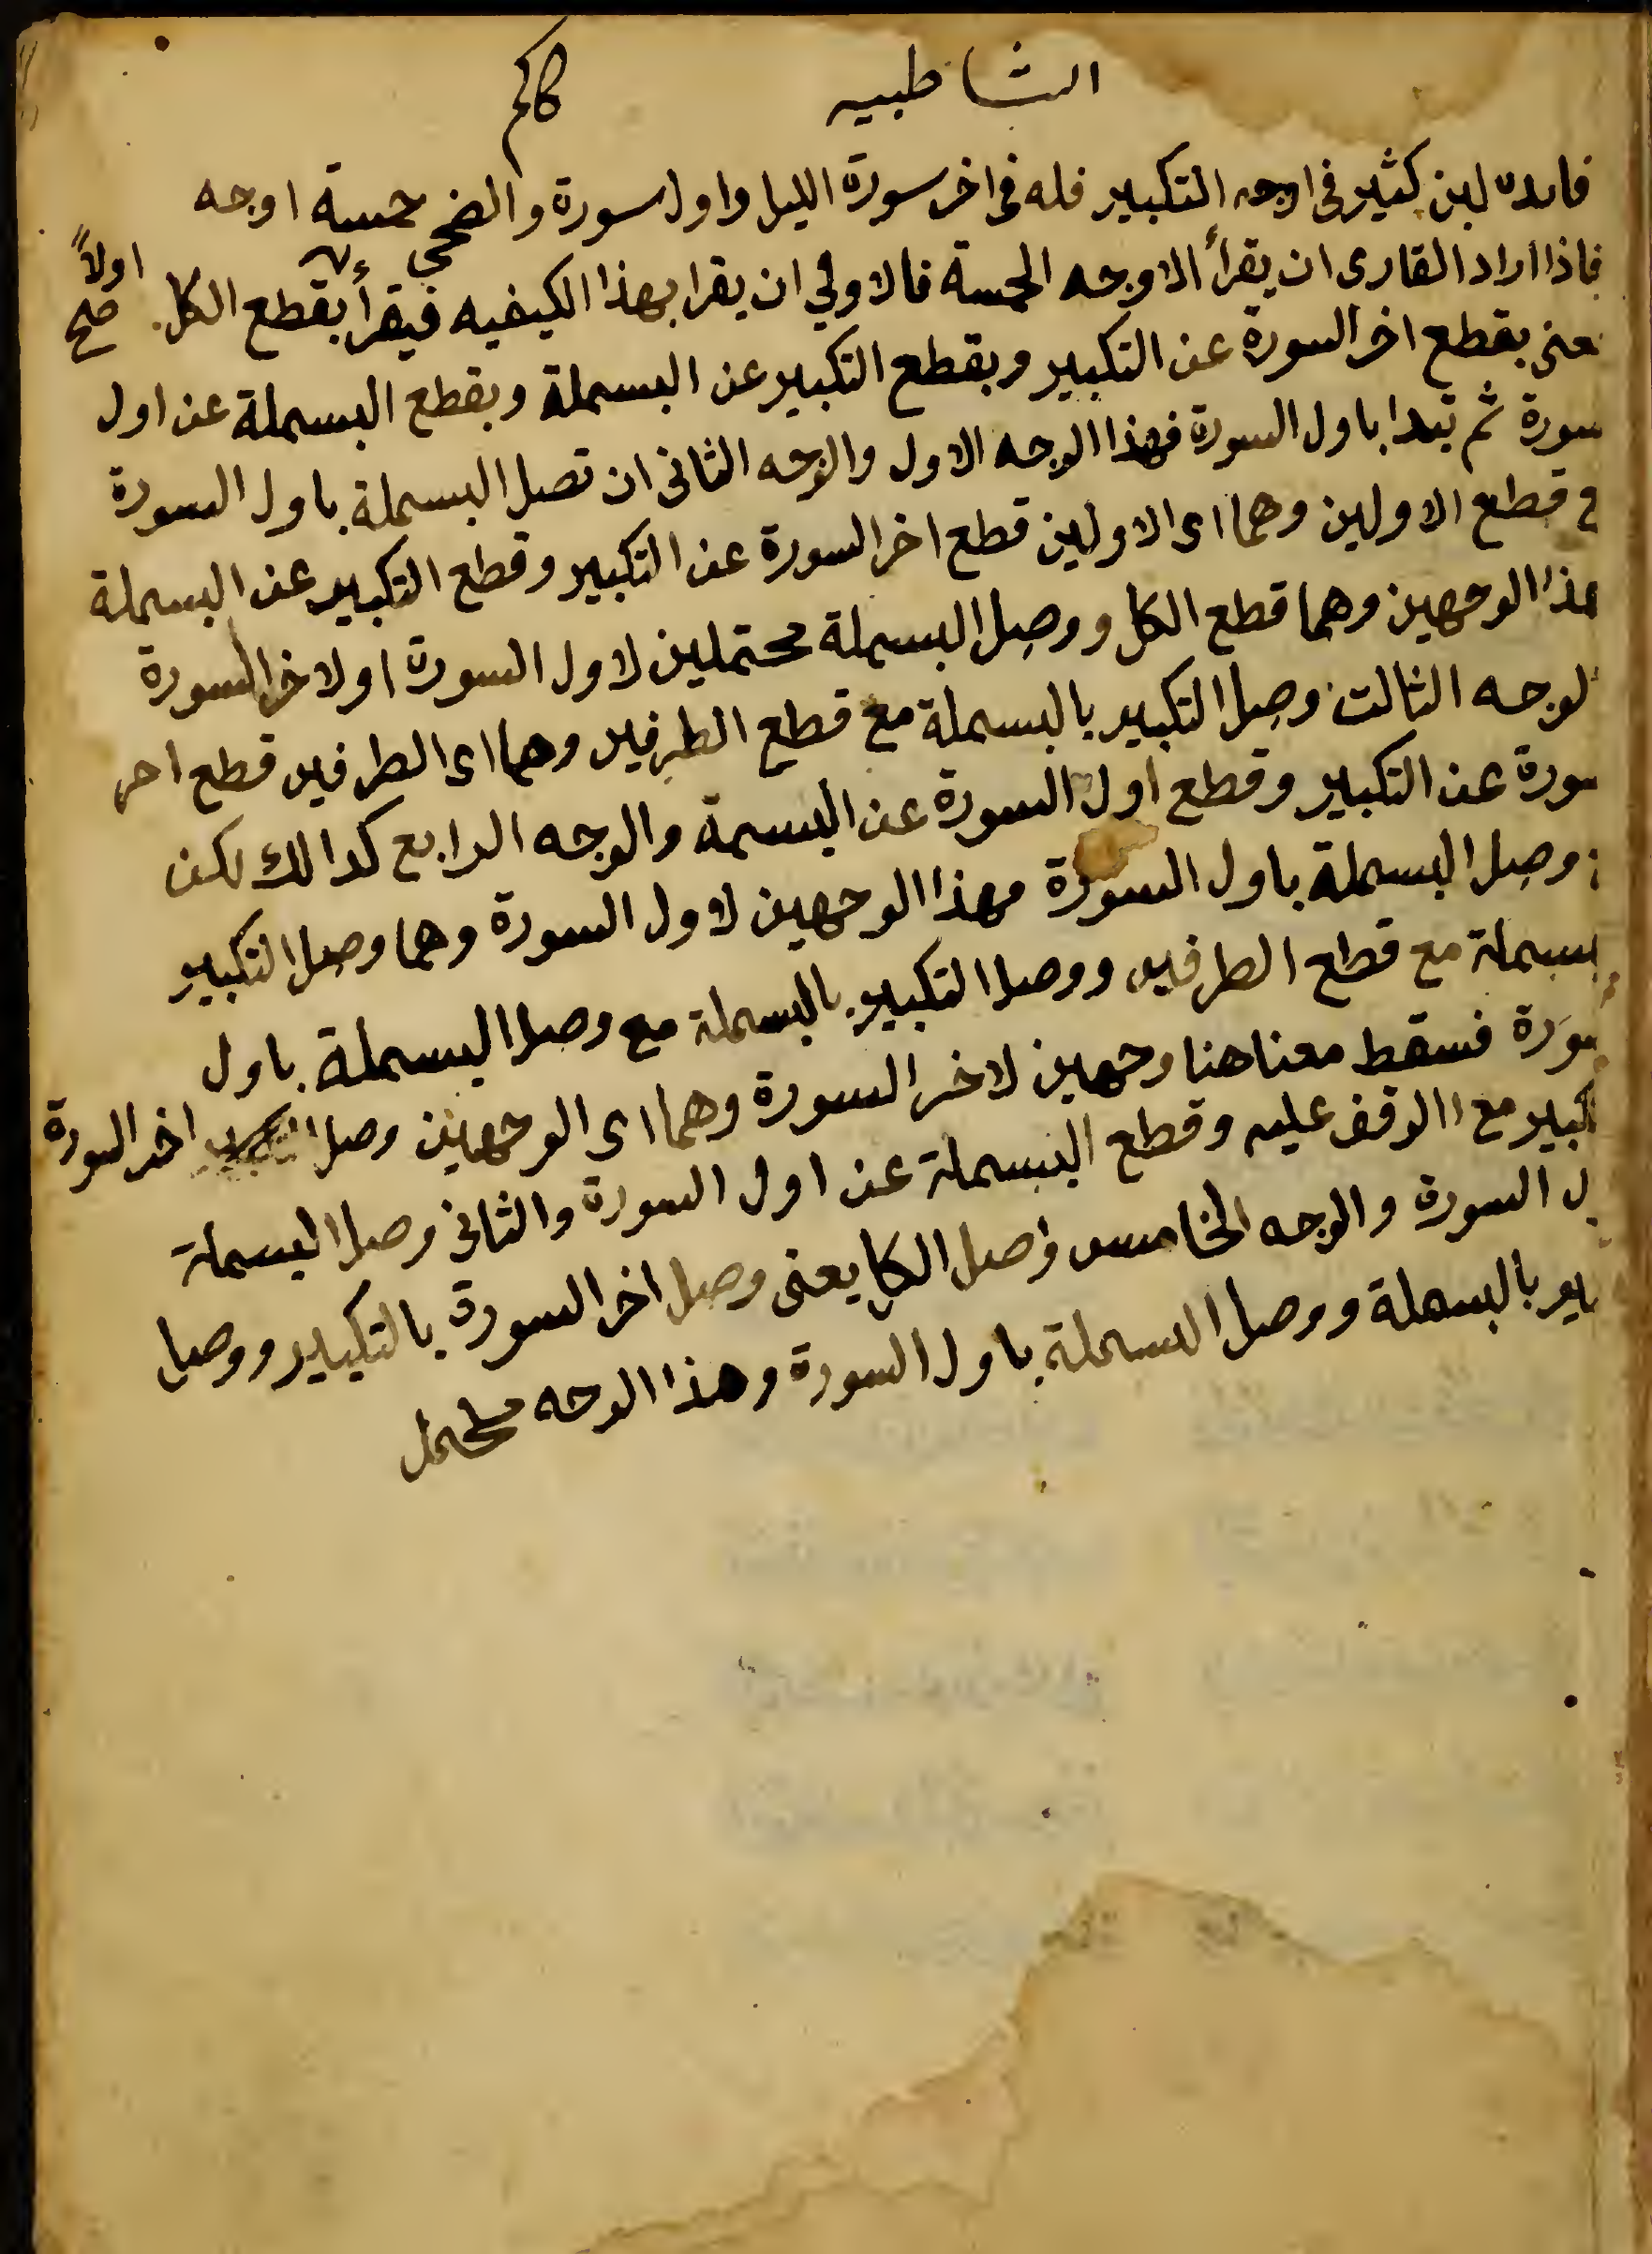 الشاطبيه
فايده لبن كثير فى اوجه التكبير فله فى اخر سورة الليل واول سورة والضحى خمسة اوجه
فاذا اراد القارى ان يقرأ الاوجه الخمسة فالاولي ان يقرا بهذا الكيفيه فيقرأ بقطع الكل اولاً صح
يعنى بقطع اخر السورة عن التكبير وبقطع التكبير عن البسملة وبقطع البسملة عن اول
سورة ثم تبدا باول السورة فهذا الوجه الاول والوجه الثانى ان تصل البسملة باول السورة
ع قطع الاولين وهما اى الاولين قطع اخر السورة عن التكبير وقطع التكبير عن البسملة
هذا الوجهين وهما قطع الكل ووصل البسملة محتملين لاول السورة او لاخر السورة
لوجه الثالث وصل التكبير بالبسملة مع قطع الطرفين وهما اى الطرفين قطع اخر
سورة عن التكبير وقطع اول السورة عن البسمة والوجه الرابع كدالك لكن
وصل البسملة باول السورة فهذا الوجهين لاول السورة وهما وصل التكبير
بسملة مع قطع الطرفين ووصل التكبير بالبسملة مع وصل البسملة باول
سورة فسقط معنا هنا وجهين لاخر السورة وهما اى الوجهين وصل اخر السورة
كبير مع الوقف عليه وقطع البسملة عن اول السورة والثانى وصل البسملة
ل السورة والوجه الخامس وصل الكل يعنى وصل اخر السورة بالتكبير ووصل
بير بالبسملة ووصل البسملة باول السورة وهذا الوجه محتمل